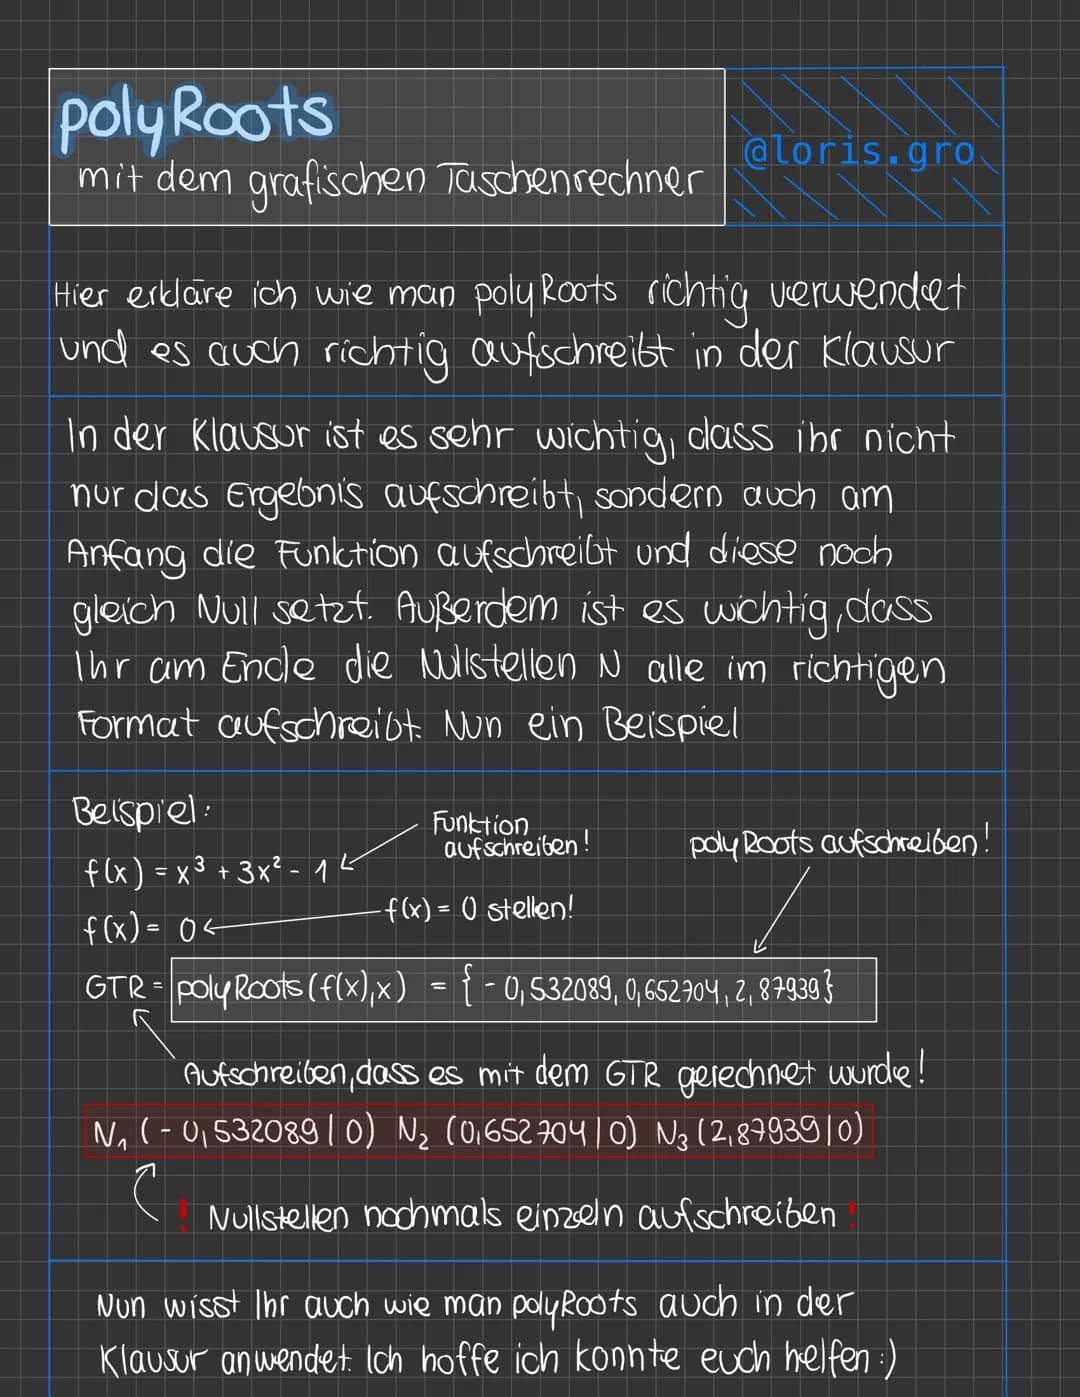 polyRoots
mit dem grafischen Taschenrechner
@loris.gro
Hier erkläre ich wie man polyRoots richtig verwendet
und es auch richtig aufschreibt in der Klausur
In der Klausur ist es sehr wichtig, dass ihr nicht
nur das Ergebnis aufschreibt, sondern auch am
Anfang die Funktion aufschreibt und diese noch
gleich Null setzt. Außerdem ist es wichtig, dass
Ihr am Ende die Nullstellen N alle im richtigen
Format aufschreibt. Nun ein Beispiel
Beispiel:
Funktion
aufschreiben!
polyRoots aufschreiben!
f(x) = x³ + 3x² - 1
f(x) = 0
f(x) = 0 stellen!
GTR = polyRoots(f(x),x) = {-0,532089, 0,652704, 2,87939}
Aufschreiben, dass es mit dem GTR gerechnet wurde!
N₁ (-0,532089|0) N₂ (0,652704|0) N₃ (2,87939|0)
! Nullstellen nochmals einzeln aufschreiben !
Nun wisst Ihr auch wie man polyRoots auch in der
Klausur anwendet. Ich hoffe ich konnte euch helfen :)